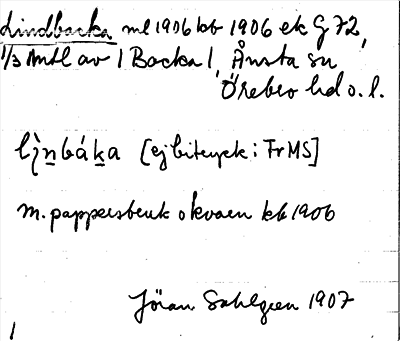 Lindbacka ml 1906 kb 1906 ek G 72,
1/3 Mtl av | Backa |, Ånsta sn
Örebro hd o. l.
lìnbáka [ej bitryck: Fr MS]
m. pappersbruk o kvarn kb 1906
Jöran Sahlgren 1907
1